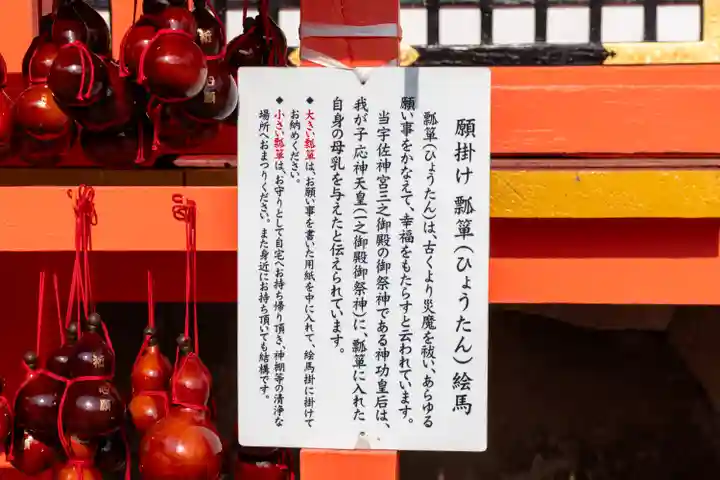 願掛け 瓢箪(ひょうたん)絵馬
瓢箪(ひょうたん)は、古くより災魔を祓い、あらゆる
願い事をかなえて、幸福をもたらすと云われています。
当宇佐神宮三之御殿の御祭神である神功皇后は、
我が子 応神天皇(一之御殿御祭神)に、瓢箪に入れた
自身の母乳を与えたと伝えられています。
◆大きい瓢箪は、お願い事を書いた用紙を中に入れて、絵馬掛に掛けて
お納めください。
◆小さい瓢箪は、お守りとして自宅へお持ち帰り頂き、神棚等の清浄な
場所へおまつりください。また身近にお持ち頂いても結構です。